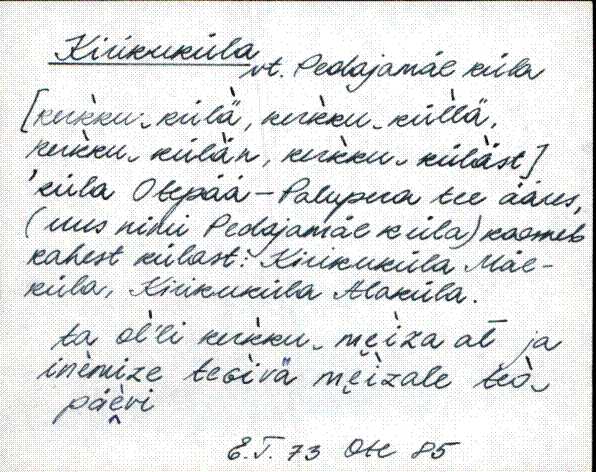 Kirikuküla
vt. Pedajamäe küla
[kerk̀ku‿külä, kerk̀ku‿kül̀lä,
kerk̀ku‿külän, kerk̀ku‿küläst]
'küla Otepää – Palupera tee ääres,
(uus nimi Pedajamäe küla) koosneb
kahest külast: Kirikuküla Mäe-
küla, Kirikuküla Alaküla.
ta ol̀'li kerk̀ku‿mɇìza al ja
inèmize tegìvä mɇìzale teò‿
päevi
E.T. 73 Ote 85